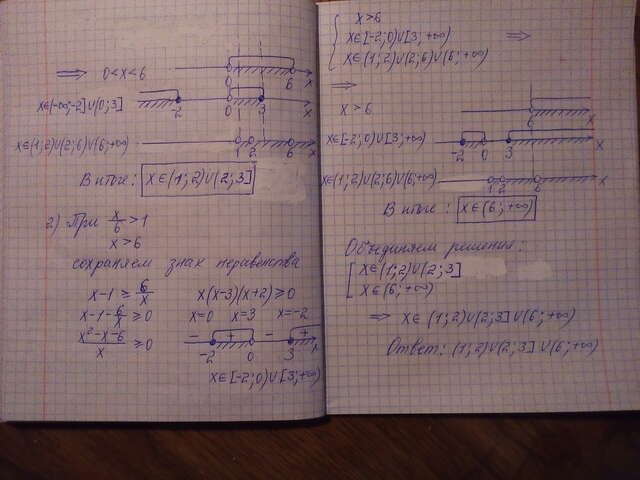 ⟹ 0<x<6
0 6 x
x∈(-∞;-2]∪(0;3]
-2 0 3 x
x∈(1;2)∪(2;6)∪(6;+∞)
1 2 6 x
В итоге: x∈(1;2)∪(2;3]
2) При x/6 >1
x>6
сохраняем знак неравенства
x-1 ≥ 6/x
x-1-6/x ≥0
(x²-x-6)/x ≥0
x(x-3)(x+2)≥0
x=0 x=3 x=-2
- + - +
-2 0 3 x
x∈[-2;0)∪[3;+∞)
{ x>6
x∈[-2;0)∪[3;+∞) ⟹
x∈(1;2)∪(2;6)∪(6;+∞)
⟹
x>6
6 x
x∈[-2;0)∪[3;+∞)
-2 0 3 x
x∈(1;2)∪(2;6)∪(6;+∞)
1 2 6 x
В итоге: x∈(6;+∞)
Объединяем решения:
[ x∈(1;2)∪(2;3]
x∈(6;+∞)
⟹ x∈(1;2)∪(2;3]∪(6;+∞)
Ответ: (1;2)∪(2;3]∪(6;+∞)